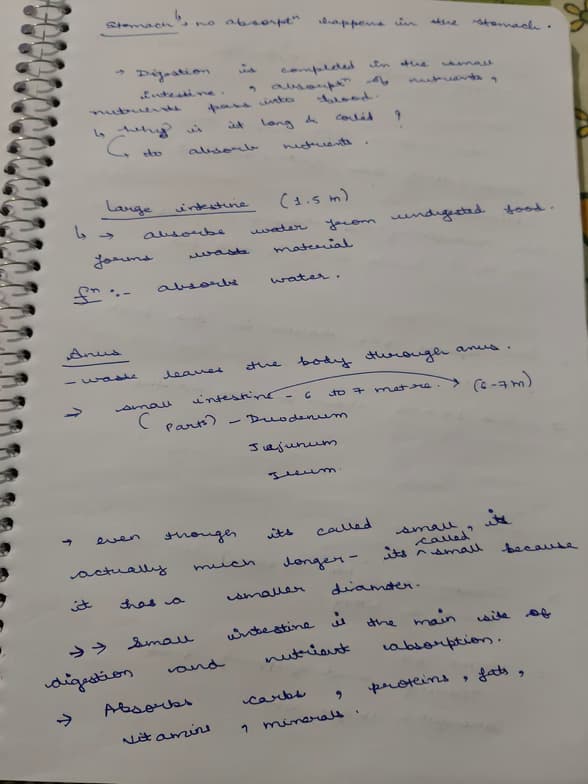 Stomach ↳ no absorpⁿ happens in the stomach.
→ Digestion is completed in the small
intestine. , absorpⁿ of nutrients,
nutrients pass into blood.
↳ Why is it long & coiled ?
↳ to absorb nutrients.
Large intestine (1.5 m)
↳ → absorbs water from undigested food.
forms waste material
fⁿ :- absorbs water.
Anus
- waste leaves the body through anus.
→ small intestine - 6 to 7 metre. → (6-7m)
(Parts) - Duodenum
Jejunum
Ileum.
→ even though its called small, its
actually much longer - its called small because
it has a smaller diamter.
→→ Small intestine is the main site of
digestion and nutrient absorption.
→ Absorbs carbs, proteins, fats,
vitamins, minerals.